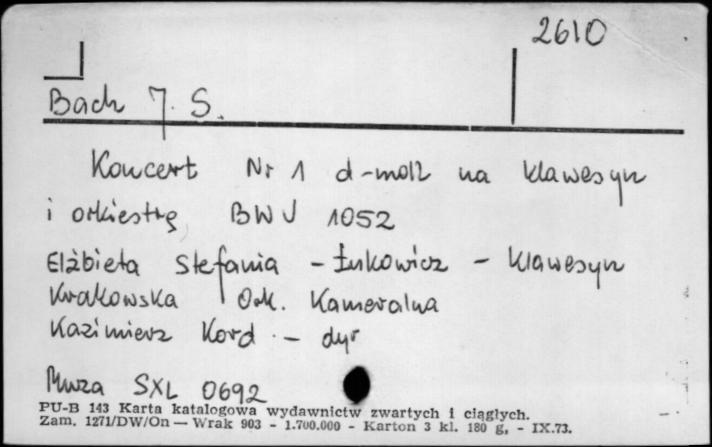 2610
Bach J. S.
Koncert Nr 1 d-moll na klawesyn
i orkiestrę BWV 1052
Elżbieta Stefania - Łukowicz - klawesyn
Krakowska Ork. Kameralna
Kazimierz Kord - dyr
Muza SXL 0692
PU-B 143 Karta katalogowa wydawnictw zwartych i ciągłych.
Zam. 1271/DW/On — Wrak 903 - 1.700.000 - Karton 3 kl. 180 g, - IX.73.